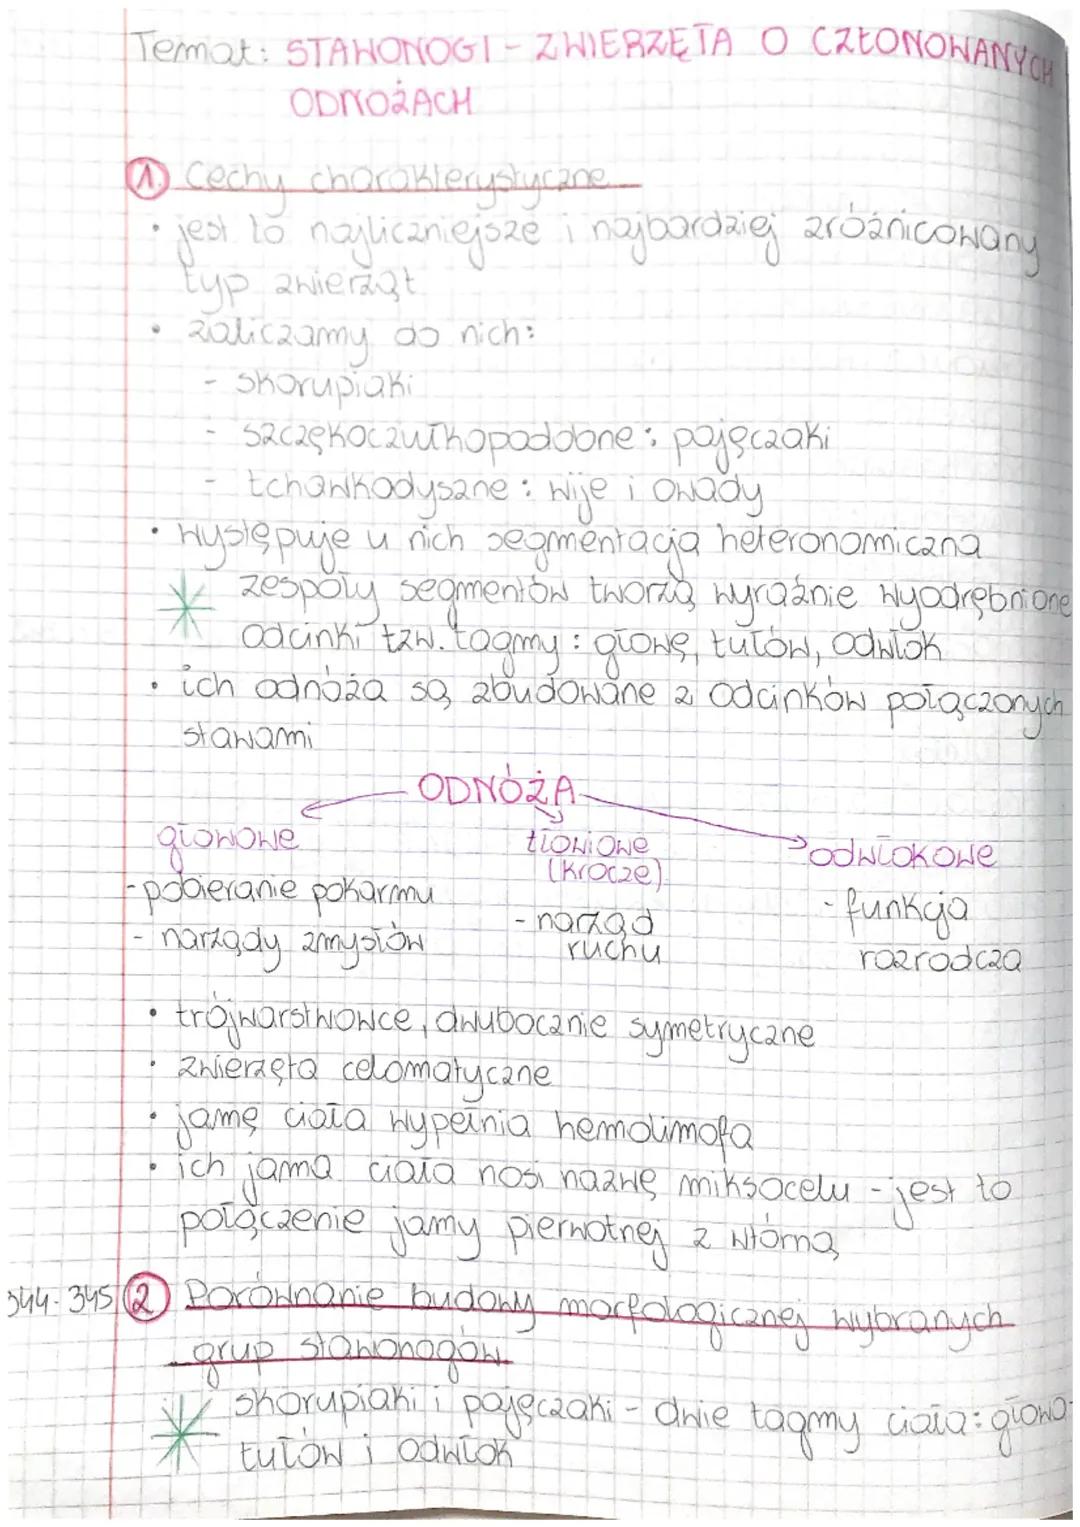 Temat: STAWONOGI - ZWIERZĘTA O CZŁONOWANYCH
ODNÓŻACH
1. Cechy charakterystyczne
• jest to najliczniejsze i najbardziej zróżnicowany
typ zwierząt
• zaliczamy do nich:
- skorupiaki
- szczękoczułkopodobne: pajęczaki
- tchawkodyszne: wije i owady
• występuje u nich segmentacja heteronomiczna
zespoły segmentów tworzą wyraźnie wyodrębnione
odcinki tzw. tagmy: głowę, tułów, odwłok
• ich odnóża są zbudowane z odcinków połączonych
stawami
ODNÓŻA
głowowe
- pobieranie pokarmu
- narządy zmysłów
tłowiowe
(krocze)
- narząd
ruchu
odwłokowe
- funkcja
rozrodcza
• trójwarstwowce, dwubocznie symetryczne
• zwierzęta celomatyczne
• jamę ciała wypełnia hemolimofa
• ich jama ciała nosi nazwę miksocelu - jest to
połączenie jamy pierwotnej z wtórną
344-345 2 Porównanie budowy morfologicznej wybranych
grup stawonogów
skorupiaki i pajęczaki - dwie tagmy ciała: głowo-
tułów i odwłok